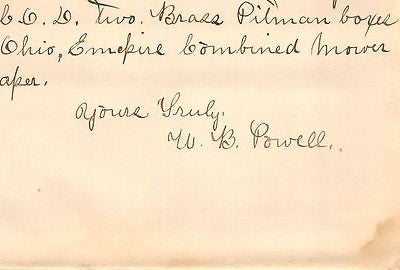 C.O.D. Two. Brass Pitman boxes
Ohio, Empire Combined Mower
aper.
Yours Truly,
W. B. Powell.